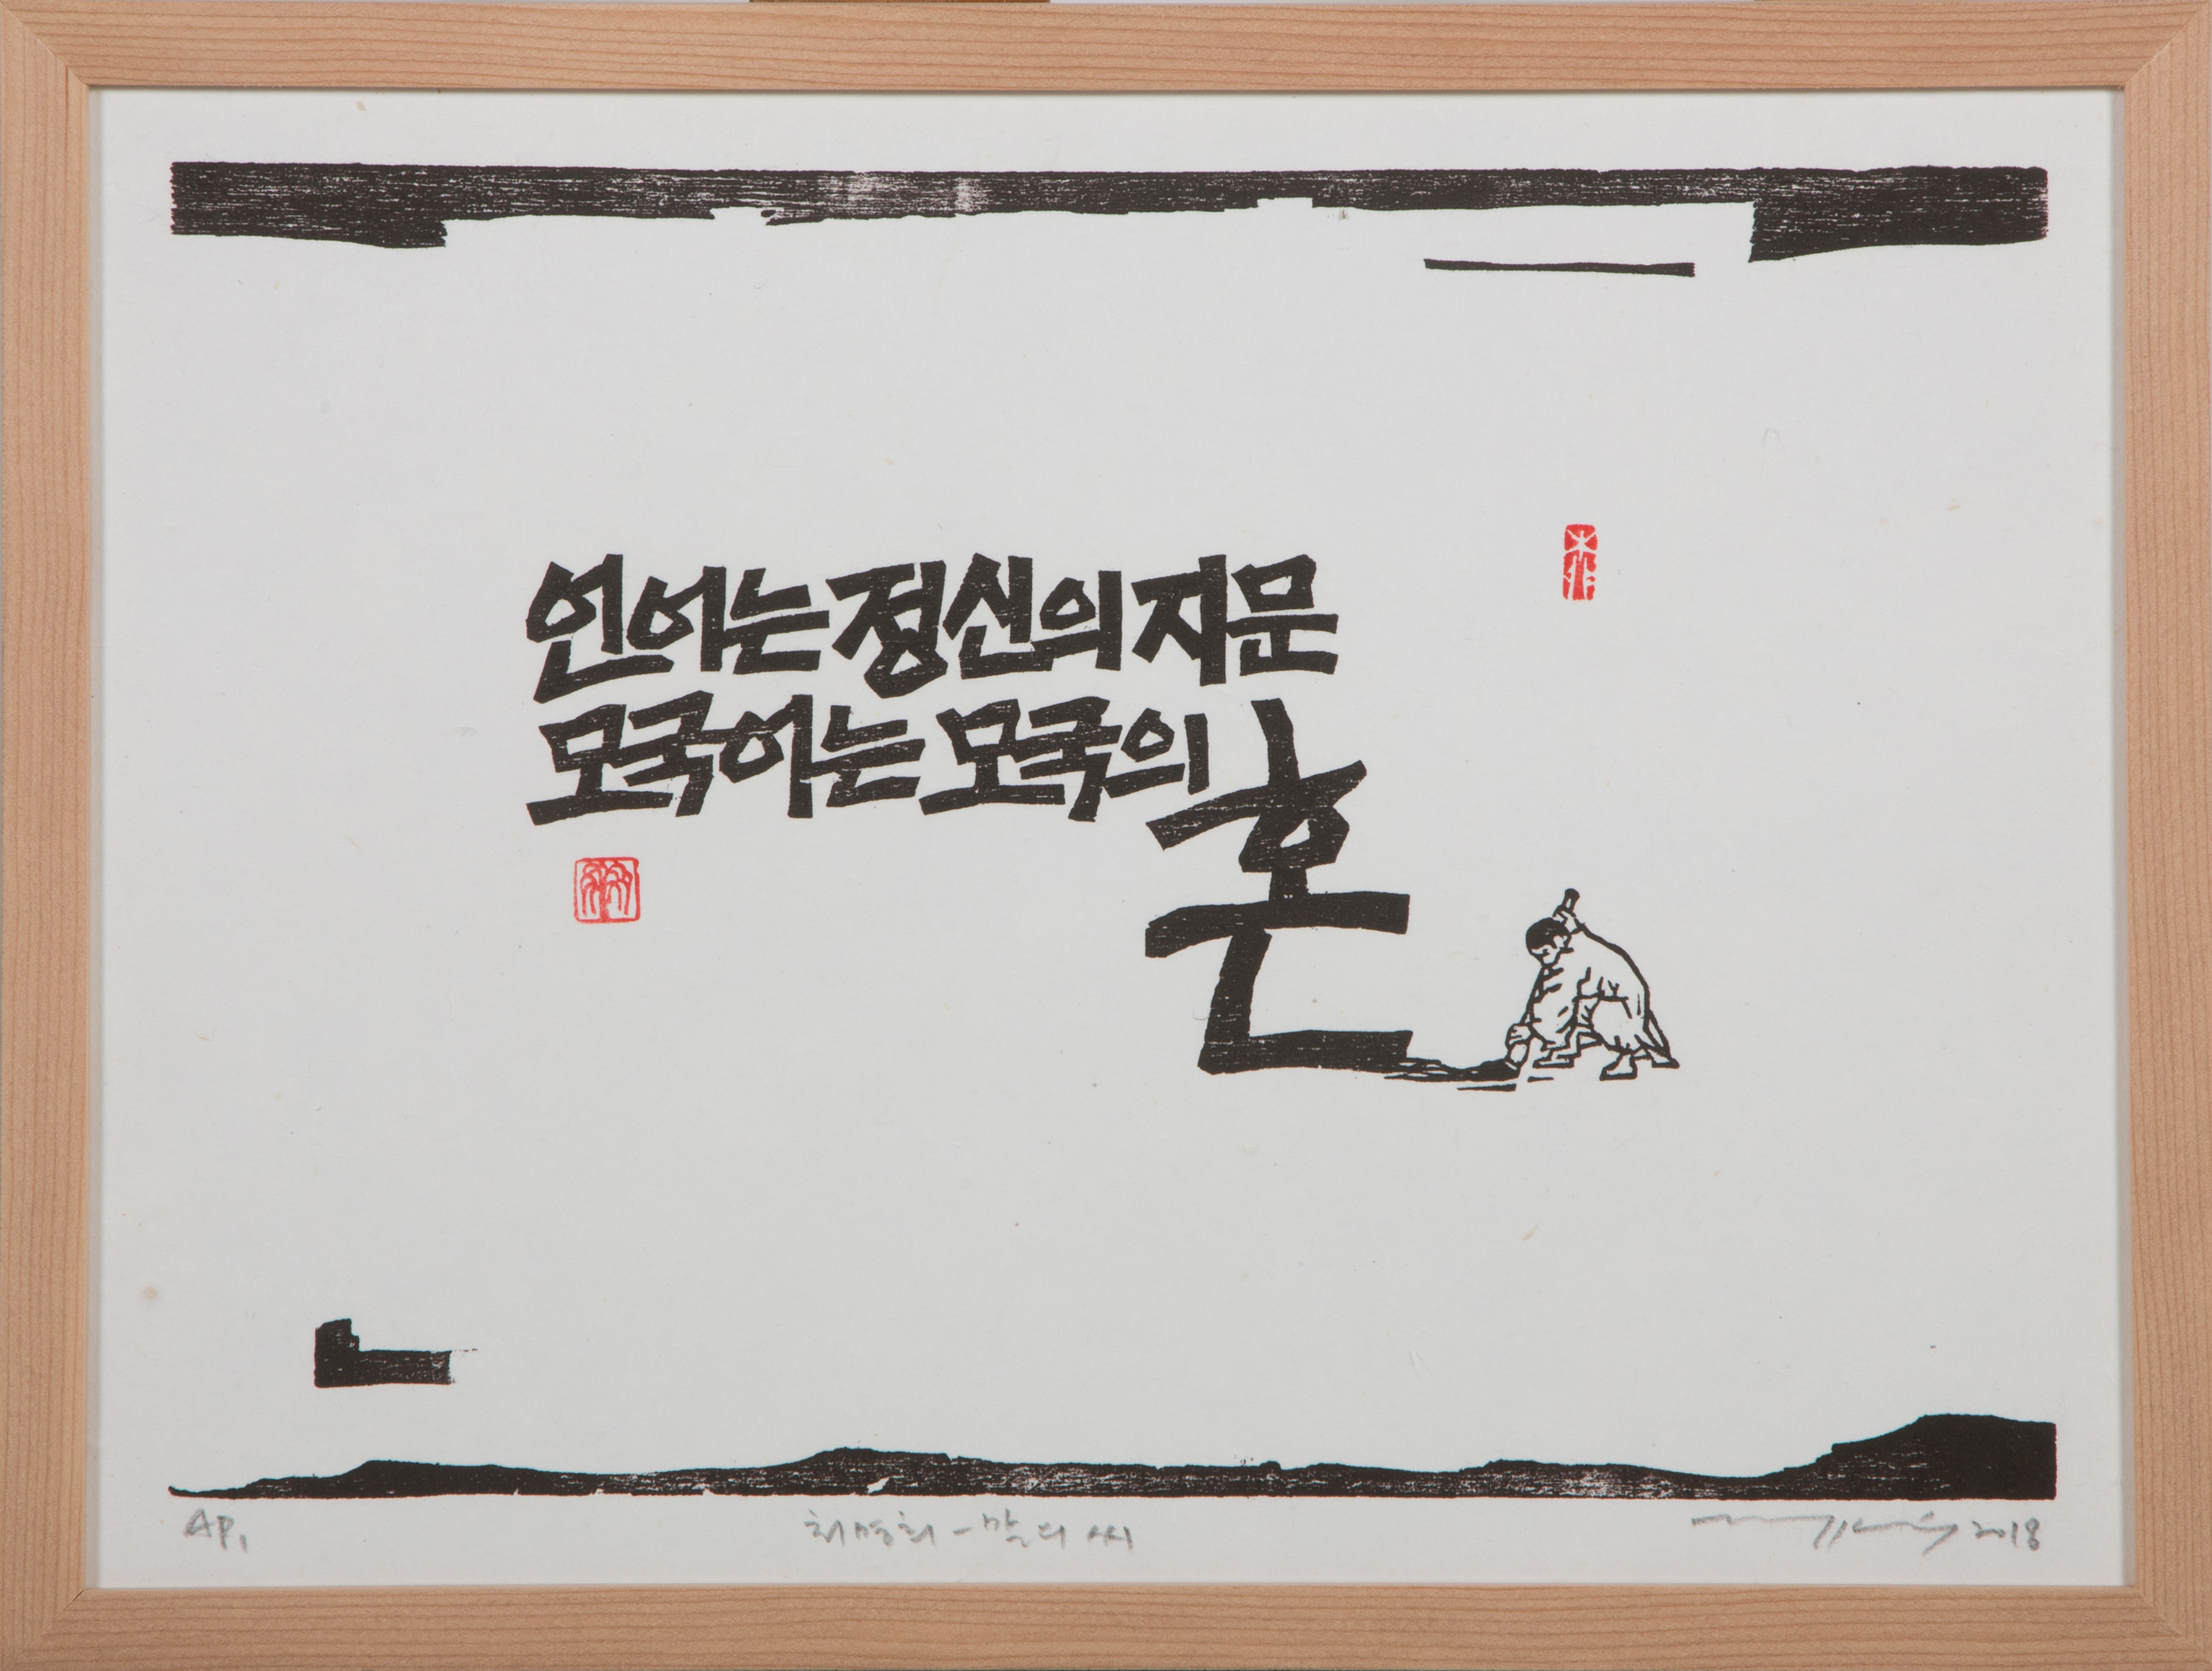 언어는 정신의 지문
모국어는 모국의 혼
AP,
최명희 - 말의 씨
2018